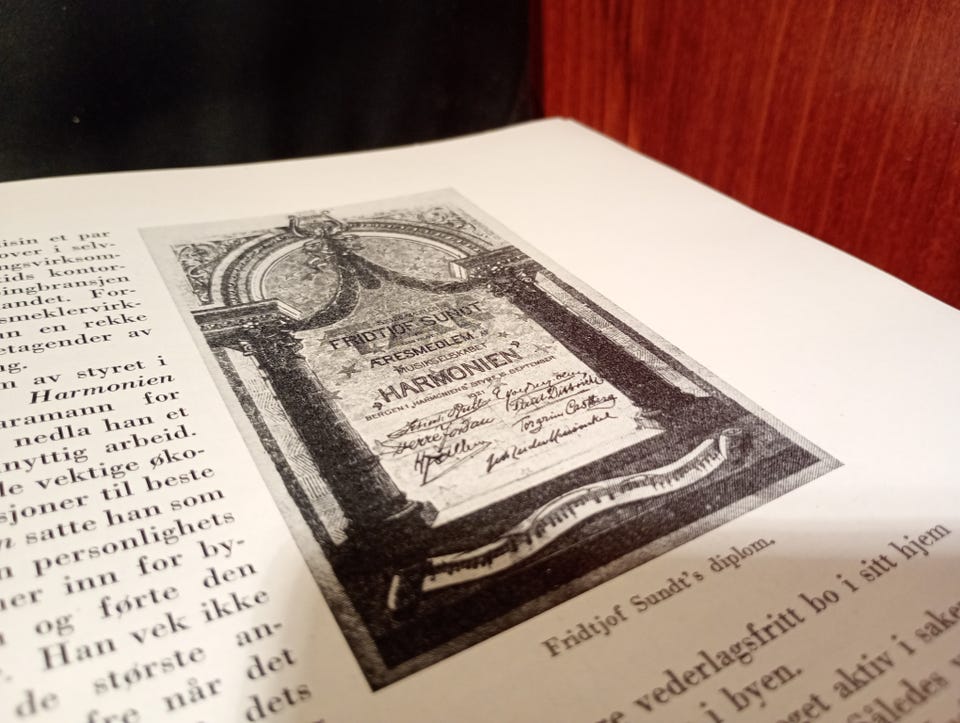 isin et par
over i selv-
ngsvirksom-
tids kontor-
pingbransjen
landet. For-
smeklervirk-
an en rekke
etagender av
ng.
m av styret i
Harmonien
aramann for
nedla han et
nyttig arbeid.
le vektige øko-
sjoner til beste
n satte han som
n personlighets
ner inn for by-
og førte den
. Han vek ikke
de største an-
fre når det
dets
FRIDTJOF SUNDT
ÆRESMEDLEM
MUSIKSELSKABET
"HARMONIEN"
BERGEN I "HARMONIENS" STYRE, 18. SEPTEMBER
1921
Torgrim Castberg
Fridtjof Sundt's diplom.
re vederlagsfritt bo i sitt hjem
i byen.
get aktiv i saker
således v